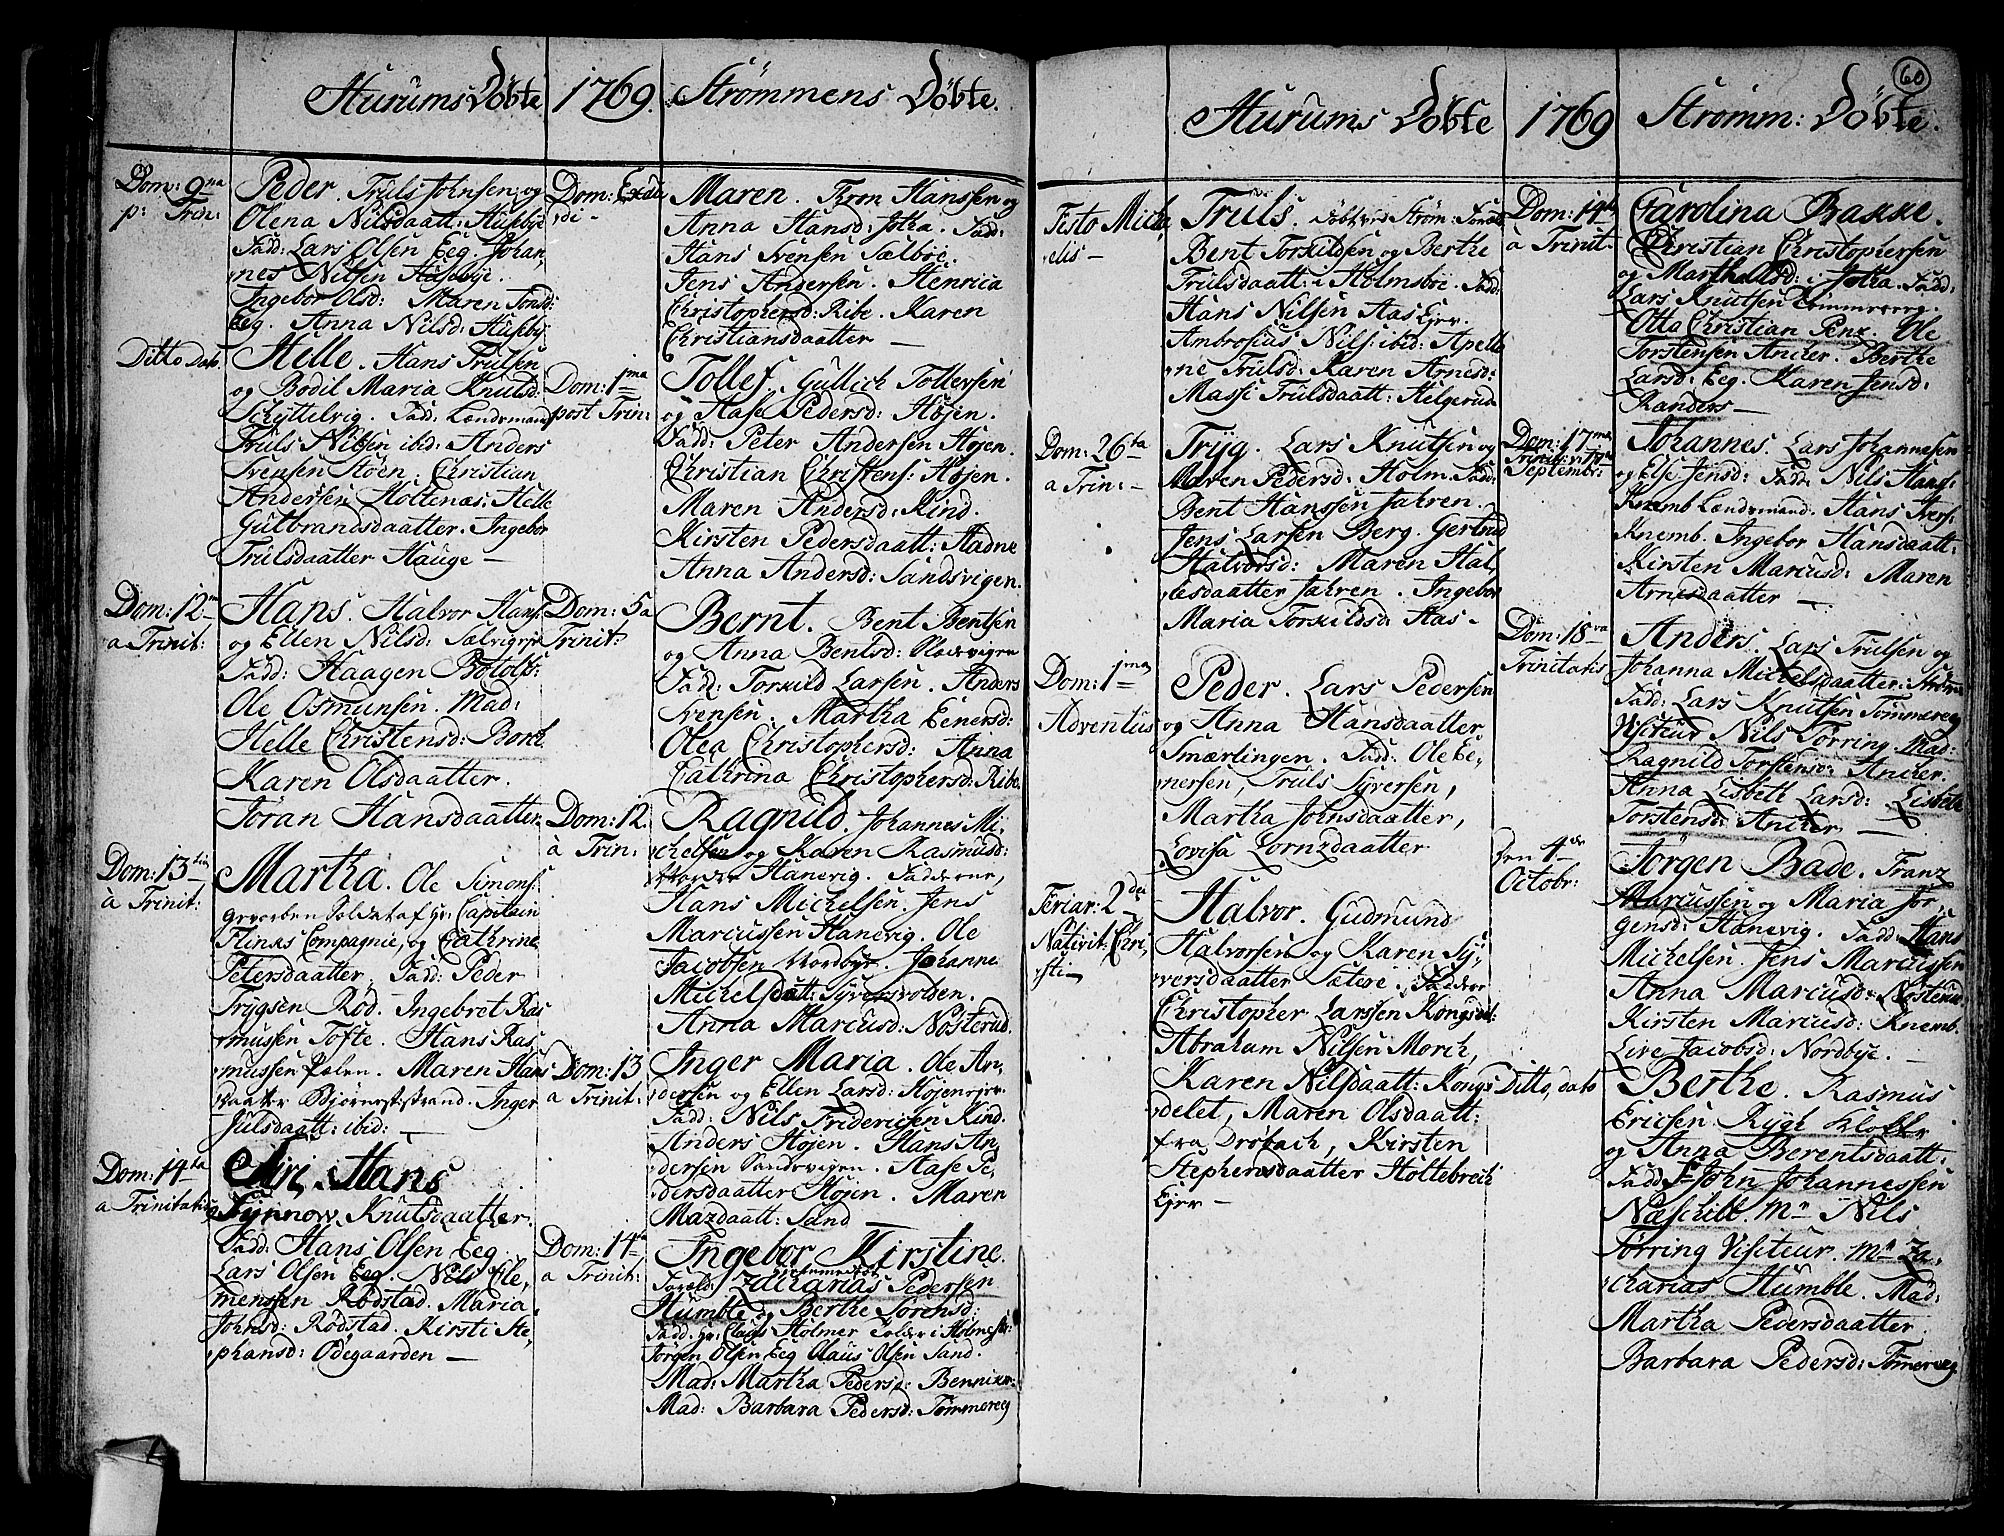 Hurums Döbte 1769. Strømmens Döbte.
Dom: 9na
p: Trin:
Peder. Truls Johnsen og
Olena Nilsdaatt: Husebye
Fadd: Lars Olsen Eeg. Johan,
nes Nilsen Husebye.
Ingebor Olsd: Maren Tonsd:
Eeg. Anna Nilsd: Huseby
Ditto Dato.
Helle. Hans Trulsen
og Bodil Maria Knutsd.
Schyttelvig. Fadd: Lændsmand
Truls Nilsen ibid: Anders
Svensen Støen. Christian
Andersen Holtenæs. Helle
Gulbrandsdaatter. Ingebor
Trulsdaatter Hauge —
Dom: 12
a Trinit:
Hans. Halvor Hans:
og Ellen Nilsd: Sælvigeje
Fadd: Haagen Botolfs:
Ole Osmunsen. Mad:
Helle Christensd: Borch
Karen Olsdaatter.
Joran Hansdaatter.
Dom: 13
à Trinit:
Martha. Ole Simons:
gevorben Soldat af Hr: Capitain
Flinks Compagnie, og Cathrine
Petersdaatter. Fadd: Peder
Trygsen Rød. Ingebret Ras
mussen Tofte. Hans Ras
mussen Pælen. Maren Hans
daatter Bjørnestrand. Inger
Julsdaatt: ibid: —
Dom: 14ta
a Trinitatis
Siri. Hans
Synnow Knutsdaatter.
Fadd: Hans Olsen Eeg.
Lars Olsen Eeg. Nils Cle,
mensen Rødstad. Maria
Johnsd: Rødstad. Kirsti Ste,
phansd: Ødegaarden —
Dom: Exau
di —
Maren. Tron Hanssen og
Anna Hansd: Jotha. Fadd:
Hans Svensen Sælboe.
Jens Andersen. Henrica
Christophersd: Ribe. Karen
Christiansdaatter —
Dom: 1ma
post Trin:
Tollef. Gullich Tollevsen
og Aase Pedersd: Højen.
Fadd: Peter Andersen Højen.
Christian Christens: Højen.
Maren Andersd: Kind.
Kirsten Pedersdaatt: Stadne
Anna Andersd: Sandsvigen.
Dom: 5a
Trinit:
Bernt. Bent Bentsen
og Anna Bentsd: Blodsvigen
Fadd: Torkild Larsen. Anders
Svensen. Martha Eenersd:
Olea Christophersd: Anna
Cathrina Christophersd: Ribe.
Dom: 12.
à Trin:
Ragnild. Johannes Mi,
chelsen og Karen Rasmusd:
Hanevig. Fadderne,
Hans Michelsen. Jens
Marcussen Hanevig. Ole
Jacobsen Nordbye. Johanne
Michelsdatt: Syversvolden.
Anna Marcusd: Nosterud.
Dom: 13
a Trinit:
Inger Maria. Ole An,
dersen og Ellen Larsd: Højeneje.
Fadd: Nils Friderichsen Kind.
Anders Højen. Hans An,
dersen Sandsvigen. Aase Pe,
dersdaatter Højen. Maren
Mazdaatt: Sand —
Dom: 14ta
a Trinit:
Ingebor Kirstine.
Foreld: Zacharias Pedersen
Humble og Berthe Sørensd:
Fadd: Hr: Claus Holmer Tolder i Holmest:
Jørgen Olsen Eeg Claus Olsen Sand.
Mad: Martha Pedersd: Bennike.
Mad: Barbara Pedersd: Tømmereeg
60
Hurums Döbte 1769 Strømm: Döbte.
Festo Micha,
elis —
Truls. Döbt ved Strøm: Foræld
Bent Torkildsen og Berthe
Trulsdaatt: i Holmsboe. Fadd:
Hans Nilsen Aas Ejer.
Ambrosius Nils: ibid: Apello
ne Trulsd: Karen Arnesd:
Massi Trulsdaatt: Helgerud
Dom: 26ta
a Trin: —
Tryg. Lars Knutsen og
Maren Pedersd: Holm. Fadd:
Bent Hanssen Jahren.
Jens Larsen Berg. Gertrud
Halvorsd: Maren Hal,
desdaatter Jahren. Ingebor
Maria Torkildsd: Aas —
Dom: 1ma
Adventus
Peder. Lars Pedersen
og Anna Hansdaatter
Smærlingen. Fadd: Ole Ee,
nersen, Truls Syversen,
Martha Johnsdaatter,
Lovisa Lornzdaatter
Feriar: 2da
Nativit: Chri,
sti —
Halvor. Gudmund
Halvorsen og Karen Sy,
versdaatter Sætere. Faddere
Christopher Larssen Kongsdel:
Abraham Nilsen Morch,
Karen Nilsdaatt: Kongs
delet, Maren Olsdaatt:
fra Drøbach, Kirsten
Stephensdaatter Holtebrech
Ejer —
Dom: 14ta
à Trinit:
Carolina Bakke.
Christian Christophersen
og Marthe Olsd: i Jotha. Fadd:
Lars Knutsen Tømmereeg.
Otto Christian Penz. Ole
Torstensen Ancher. Berthe
Larsd: Eeg. Karen Jensd:
Randers —
Dom: 17ma
Trinit:
Septembr:
Johannes. Lars Johannesen
og Else Jensd: Fadd: Nils Hans:
Knemb Lændsmand. Hans Ivers:
Knemb. Ingebor Hansdaatt:
Kirsten Marcusd: Maren
Arnesdaatter —
Dom: 18va
Trinitatis
Anders. Lars Trulsen og
Johanna Michelsdaatter: Strømm
Fadd: Lars Knutsen Tømmereeg
Visiteur Nils Tørring. Mad:
Ragnild Torstensd: Ancher.
Anna Lisbeth Larsd: Lisbeth
Torstensd: Ancher —
Den 4de
Octobr:
Jørgen Bade. Franz
Marcussen og Maria Jør,
gensd: Hanevig. Fadd: Hans
Michelsen. Jens Marcussen
Anna Marcusd: Nosterud.
Kirsten Marcusd: Knemb.
Live Jacobsd: Nordbye. —
Ditto, dato
Berthe. Rasmus
Ericsen Rygh Klokk:
og Anna Berentsdaatt:
Fadd: John Johannessen
Næschill. Mr Nils
Tørring Visiteur. Mr Za,
charias Humble. Mad:
Martha Pedersdaatter
Barbara Pedersd: Tømereeg